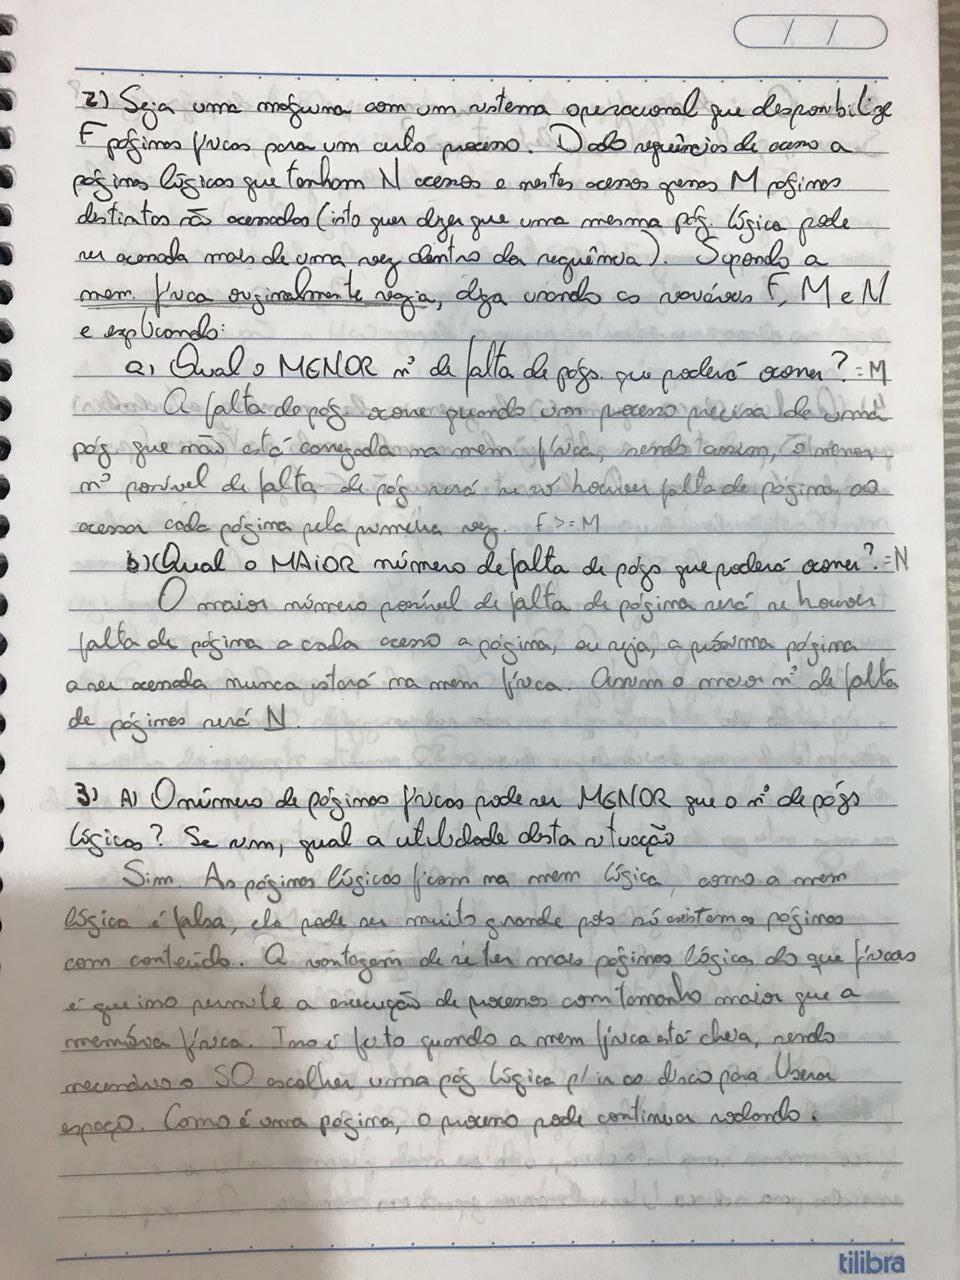 2) Seja uma máquina com um sistema operacional que disponibilize
F páginas físicas para um certo processo. Dado sequências de acesso a
páginas lógicas que tenham N acessos e nestes acessos apenas M páginas
distintas são acessadas (isto quer dizer que uma mesma pág. lógica pode
ser acessada mais de uma vez dentro da sequência). Supondo a
mem. física originalmente vazia, diga usando as variáveis F, M e N
e explicando:
a) Qual o MENOR nº de falta de págs. que poderá ocorrer? = M
A falta de pág. ocorre quando um processo precisa de uma
pág que não está carregada na mem física, sendo assim, o menor
nº possível de falta de pág será se só houver falta de página ao
acessar cada página pela primeira vez. F >= M
b) Qual o MAIOR número de falta de págs que poderá ocorrer? = N
O maior número possível de falta de página será se houver
falta de página a cada acesso a página, ou seja, a próxima página
a ser acessada nunca estará na mem física. Assim o maior nº de falta
de páginas será N.
3) A) O número de páginas físicas pode ser MENOR que o nº de págs
lógicas? Se sim, qual a utilidade desta situação
Sim. As páginas lógicas ficam na mem lógica, como a mem
lógica é falsa, ela pode ser muito grande pois só existem as páginas
com conteúdo. A vantagem de se ter mais páginas lógicas do que físicas
é que isso permite a execução de processos com tamanho maior que a
memória física. Isso é feito quando a mem física está cheia, sendo
necessário o SO escolher uma pág lógica p/ ir ao disco para liberar
espaço. Como é uma página, o processo pode continuar rodando.
tilibra